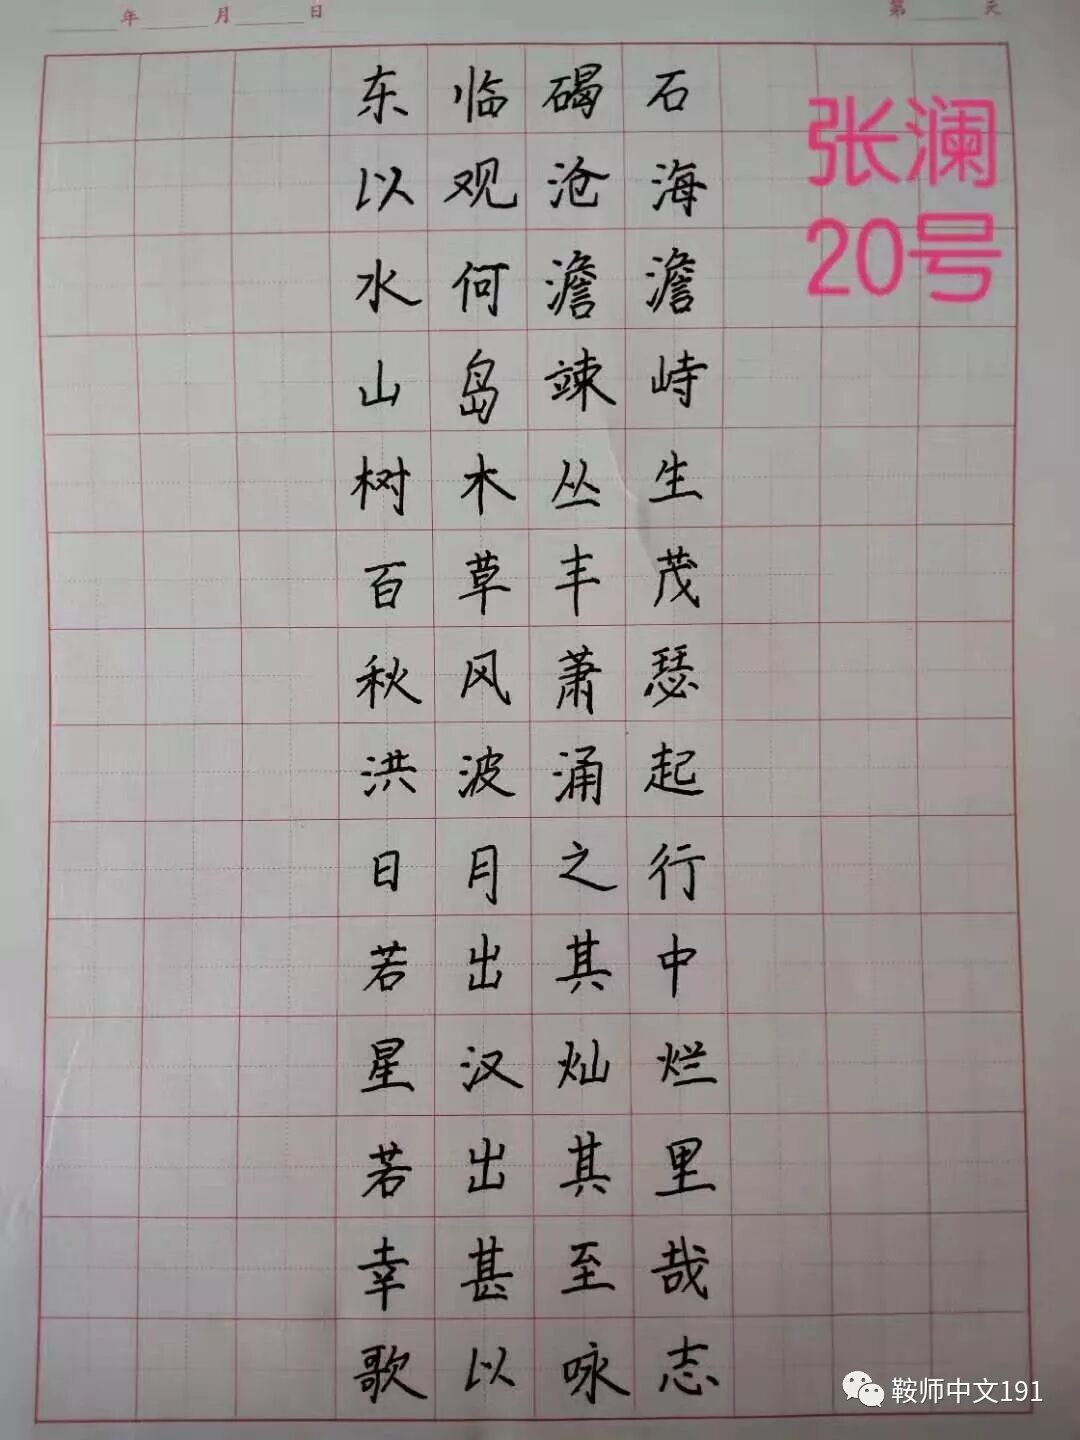 年 月 日 第 天
张澜
20号
东临碣石
以观沧海
水何澹澹
山岛竦峙
树木丛生
百草丰茂
秋风萧瑟
洪波涌起
日月之行
若出其中
星汉灿烂
若出其里
幸甚至哉
歌以咏志
鞍师中文191